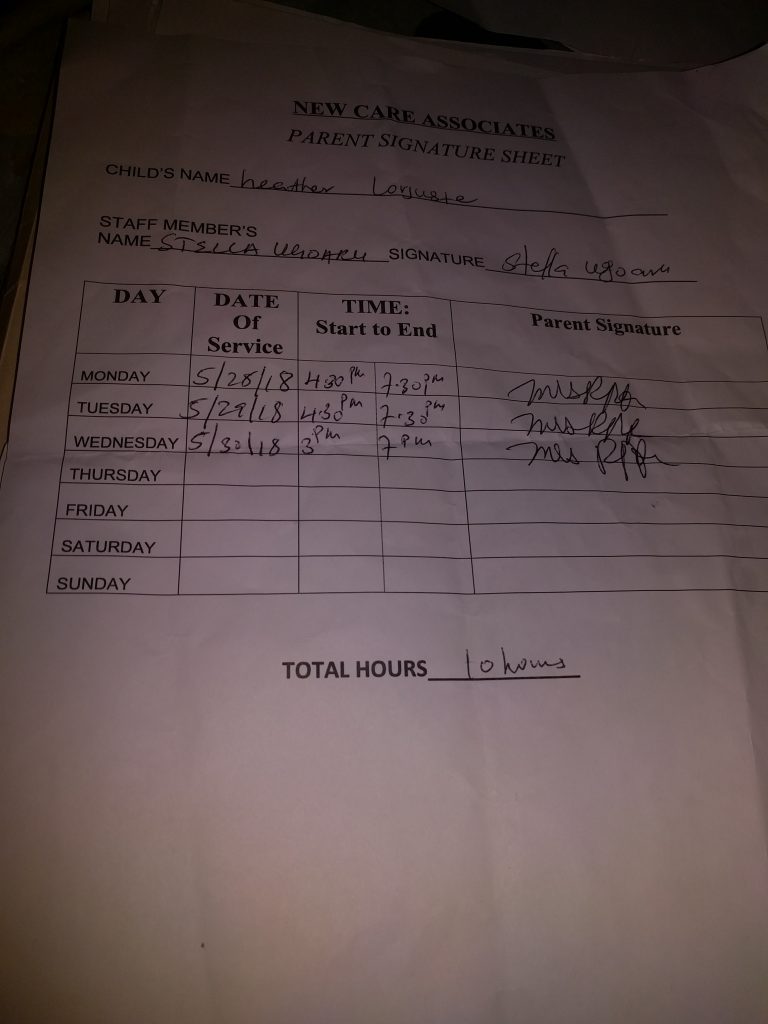 NEW CARE ASSOCIATES
PARENT SIGNATURE SHEET
CHILD'S NAME heather Lorjuste
STAFF MEMBER'S
NAME STELLA UGOARU SIGNATURE Stella ugoaru
DAY DATE Of Service TIME: Start to End Parent Signature
MONDAY 5/28/18 4:30 Pm 7.30 pm Mrs
TUESDAY 5/29/18 4:30 Pm 7.30 pm Mrs
WEDNESDAY 5/30/18 3 Pm 7 Pm Mrs
THURSDAY
FRIDAY
SATURDAY
SUNDAY
TOTAL HOURS 10 hours